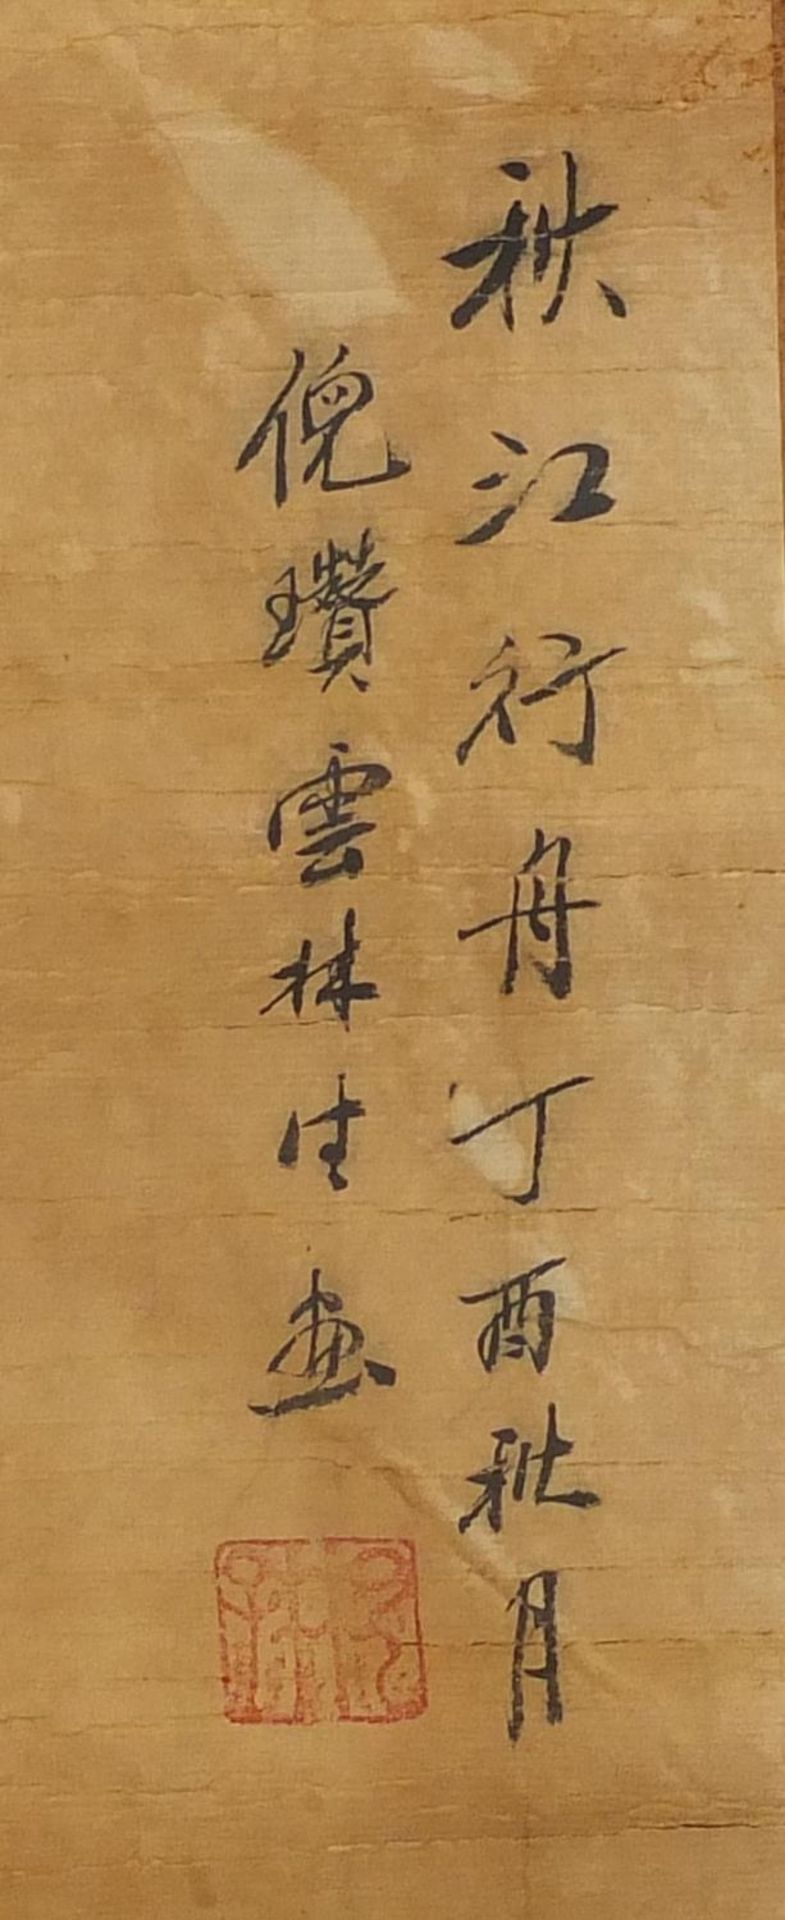 秋江行舟丁酉秋月
倪瓚雲林生畫